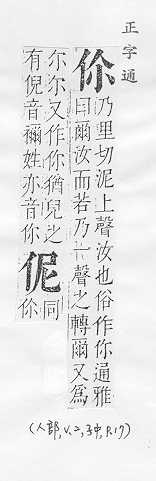 正字通
伱
乃里切泥上聲汝也俗作你通雅
曰爾汝而若乃一聲之轉爾又為
尔尒又作你猶兒之
有倪音禰姓亦音你
伲
同
伱
(人部, V.2, 子中, P.17)